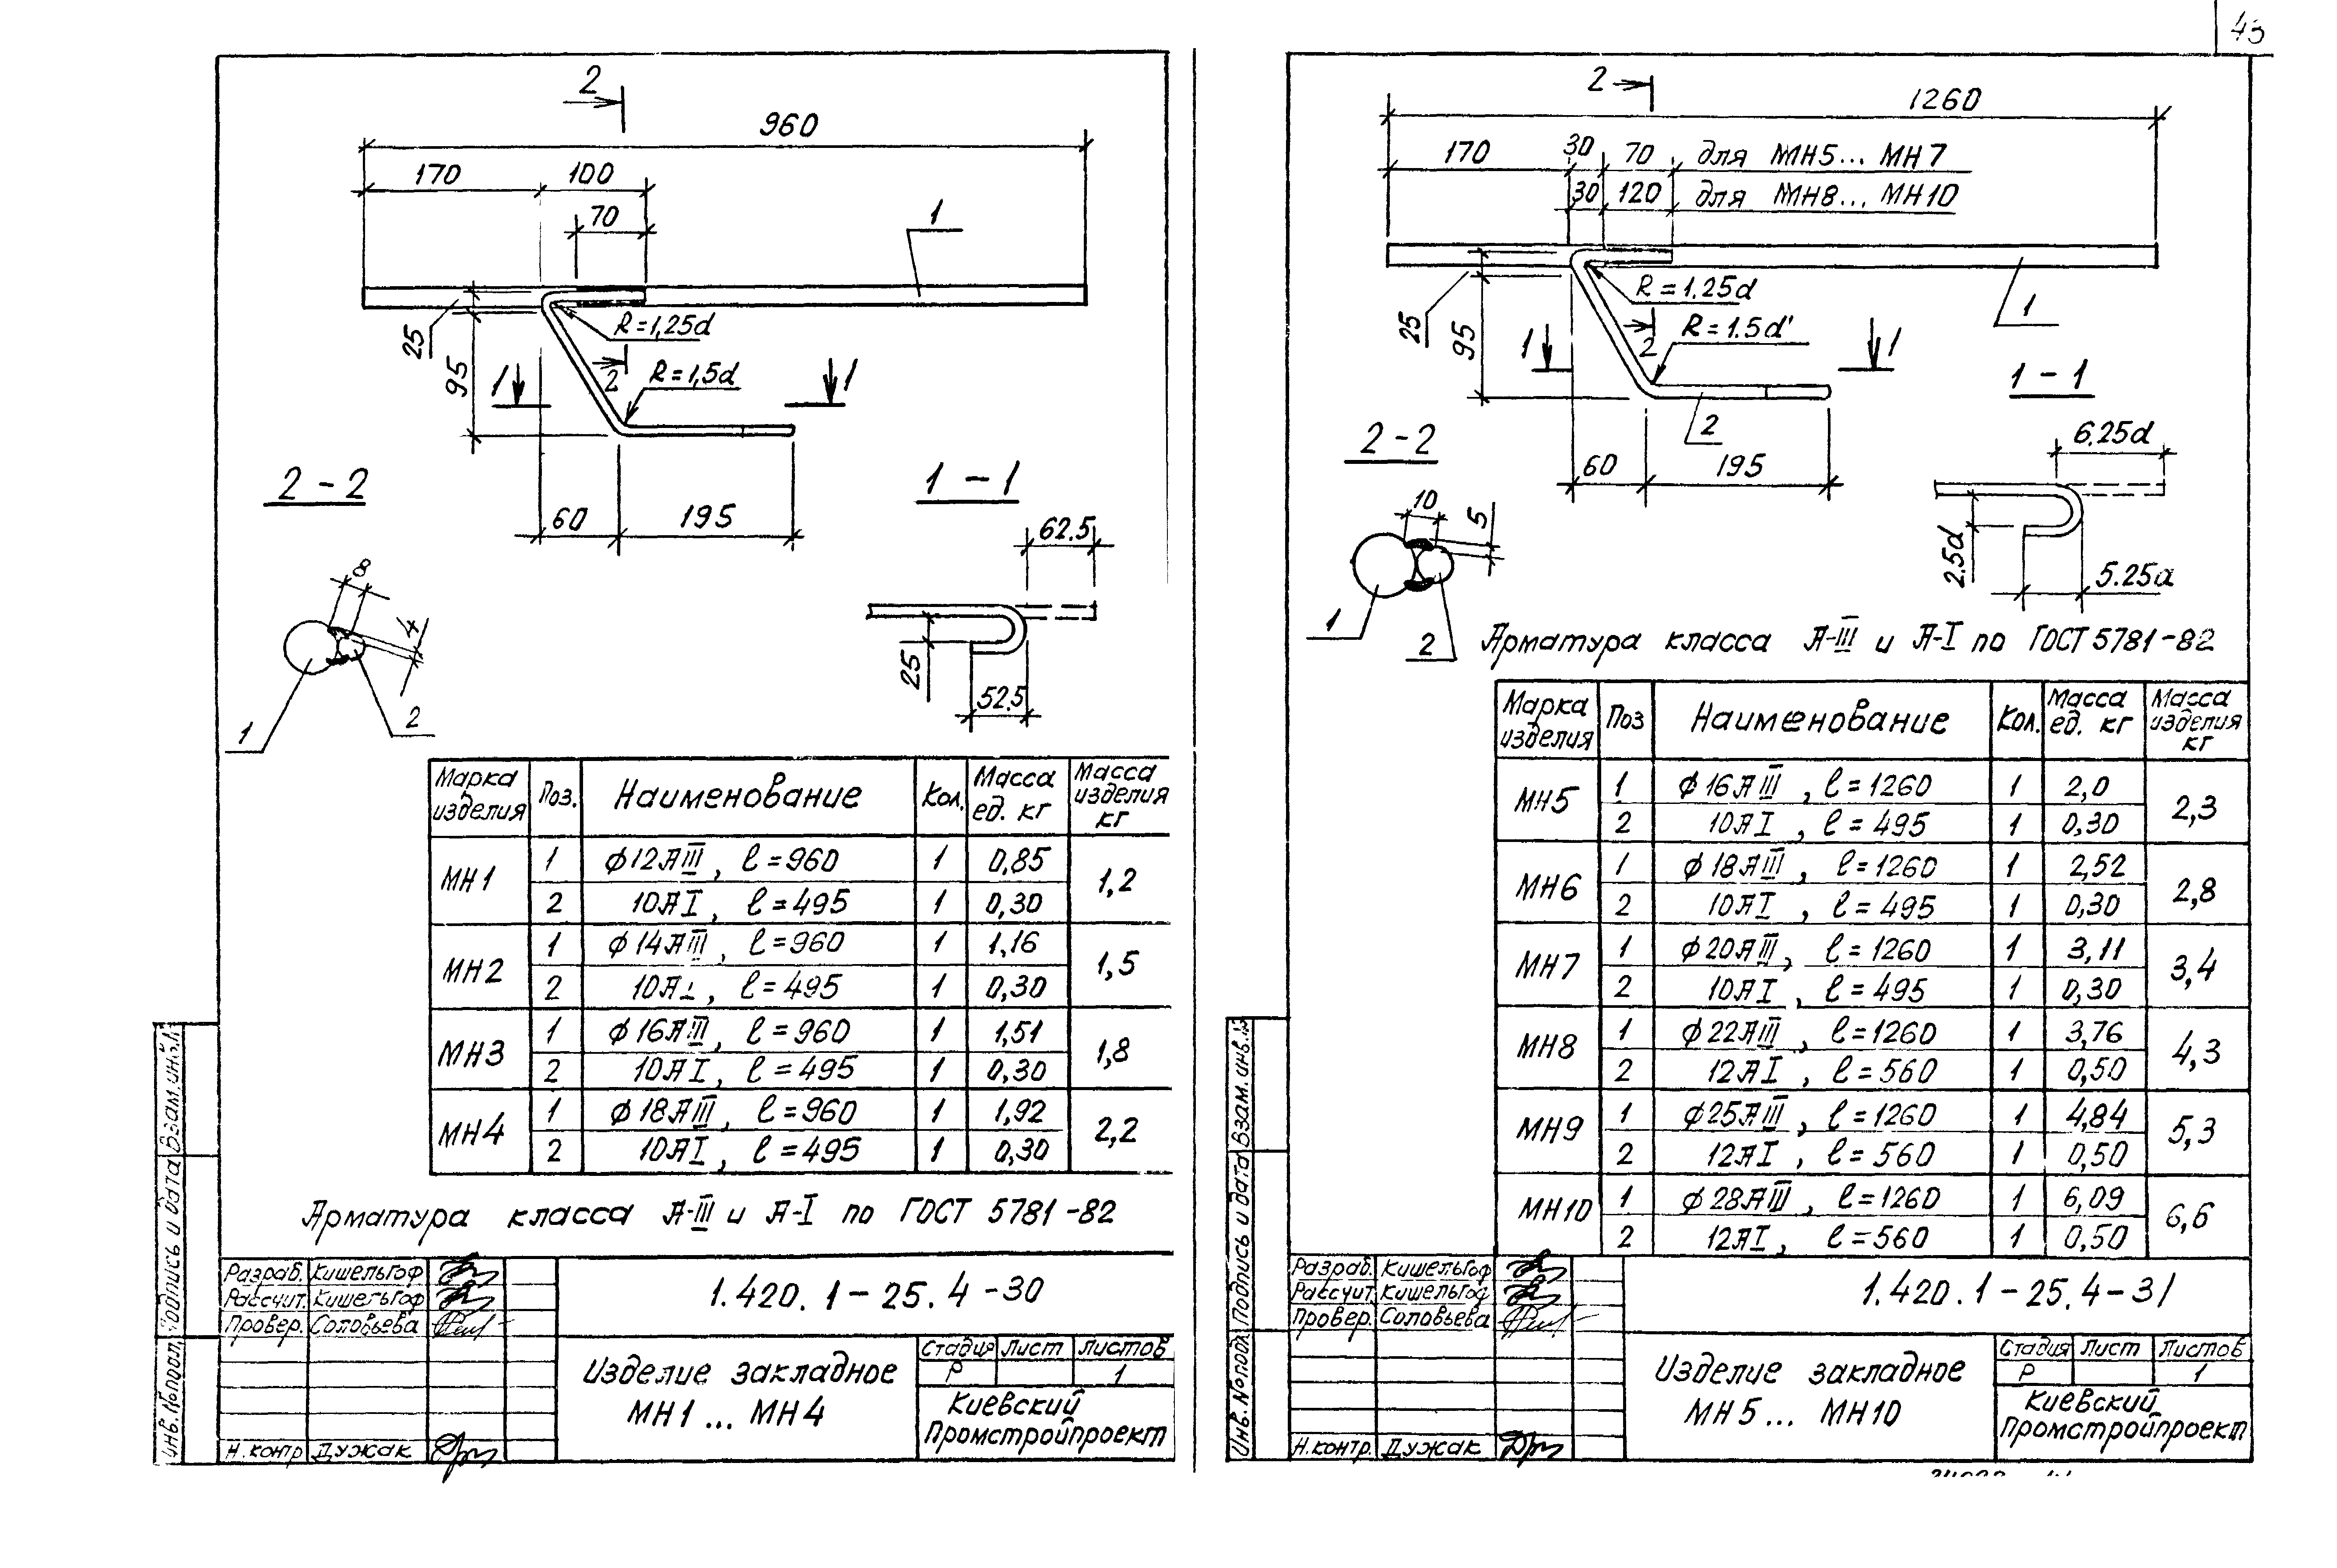 43
2
960
170
100
70
1
25
95
R=1,25d
2
R=1,5d
1
1
60
195
2-2
1-1
8
4
1
2
62.5
25
52.5
Марка изделия Поз. Наименование Кол. Масса ед. кг Масса изделия кг
МН1 1 ϕ12АIII, ℓ=960 1 0,85 1,2
2 10АI, ℓ=495 1 0,30
МН2 1 ϕ14АIII, ℓ=960 1 1,16 1,5
2 10АI, ℓ=495 1 0,30
МН3 1 ϕ16АIII, ℓ=960 1 1,51 1,8
2 10АI, ℓ=495 1 0,30
МН4 1 ϕ18АIII, ℓ=960 1 1,92 2,2
2 10АI, ℓ=495 1 0,30
Арматура класса А-III и А-I по ГОСТ 5781-82
Разраб. Кишельгоф
Рассчит. Кишельгоф
Провер. Соловьева
Н.контр Дужак
1.420.1-25.4-30
Изделие закладное
МН1... МН4
Стадия Лист Листов
Р 1
Киевский
Промстройпроект
Инв.№подл. Подпись и дата Взам.инв.№
2
1260
170 30 70 для МН5... МН7
30 120 для МН8... МН10
25
95
R=1.25d
2
R=1.5d
1
1
1
2
60
195
1-1
2-2
10
5
1
2
6.25d
2.5d
5.25d
Арматура класса А-III и А-I по ГОСТ 5781-82
Марка изделия Поз Наименование Кол. Масса ед. кг Масса изделия кг
МН5 1 ϕ16АIII, ℓ=1260 1 2,0 2,3
2 10АI, ℓ=495 1 0,30
МН6 1 ϕ18АIII, ℓ=1260 1 2,52 2,8
2 10АI, ℓ=495 1 0,30
МН7 1 ϕ20АIII, ℓ=1260 1 3,11 3,4
2 10АI, ℓ=495 1 0,30
МН8 1 ϕ22АIII, ℓ=1260 1 3,76 4,3
2 12АI, ℓ=560 1 0,50
МН9 1 ϕ25АIII, ℓ=1260 1 4,84 5,3
2 12АI, ℓ=560 1 0,50
МН10 1 ϕ28АIII, ℓ=1260 1 6,09 6,6
2 12АI, ℓ=560 1 0,50
Разраб. Кишельгоф
Рассчит. Кишельгоф
Провер. Соловьева
Н.контр. Дужак
1.420.1-25.4-31
Изделие закладное
МН5... МН10
Стадия Лист Листов
Р 1
Киевский
Промстройпроект
Инв.№подл. Подпись и дата Взам.инв.№